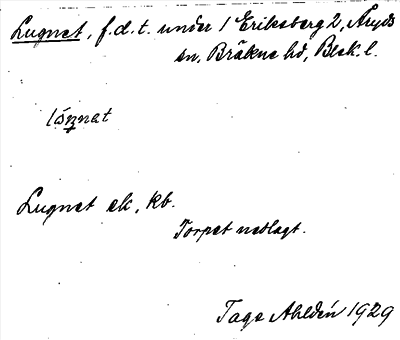 Lugnet, f.d.t. under 1 Eriksberg 2, Åryds
sn, Bräkne hd, Blek. l.
Lugnet ek, kb.
Torpet nedlagt.
Tage Ahldén 1929